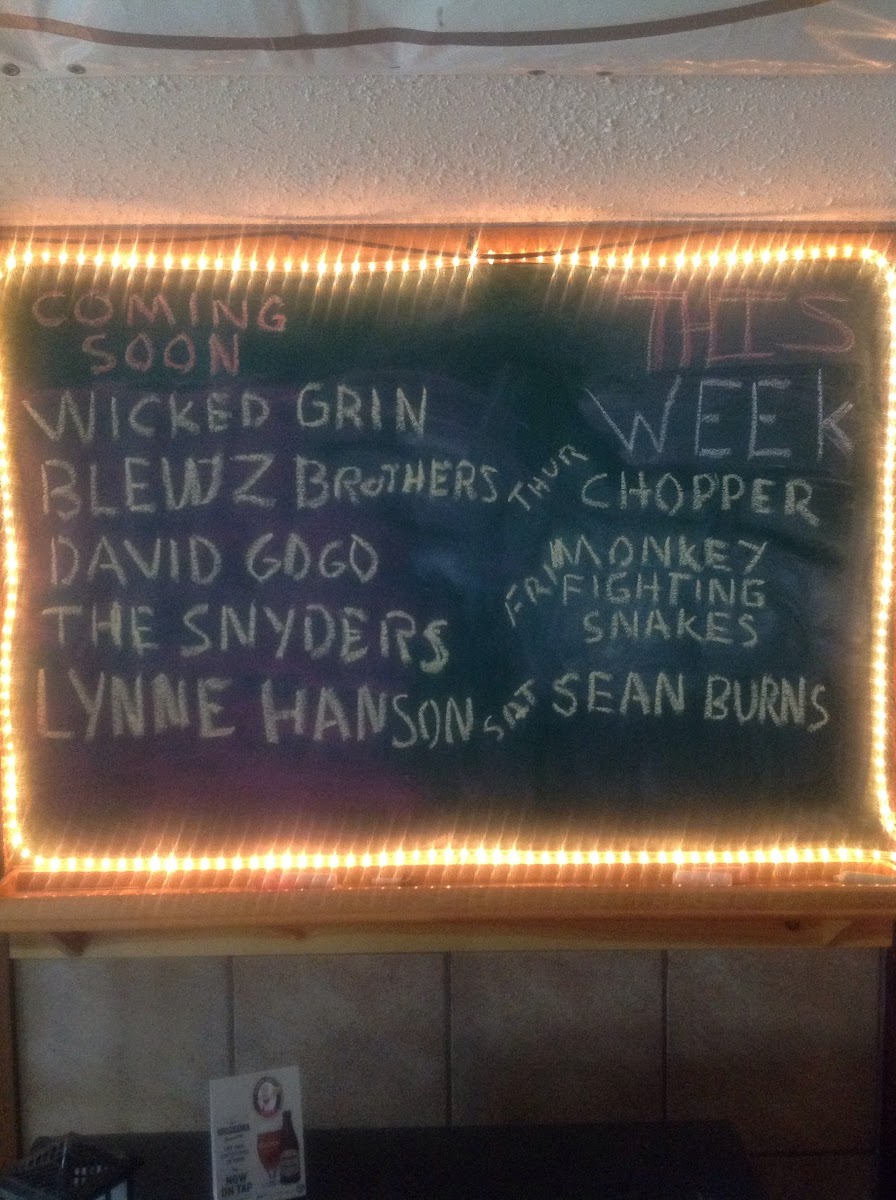 COMING
SOON
WICKED GRIN
BLEWZ BROTHERS
DAVID GOGO
THE SNYDERS
LYNNE HANSON
THIS
WEEK
THUR CHOPPER
FRI MONKEY
FIGHTING
SNAKES
SAT SEAN BURNS
NOW
ON TAP